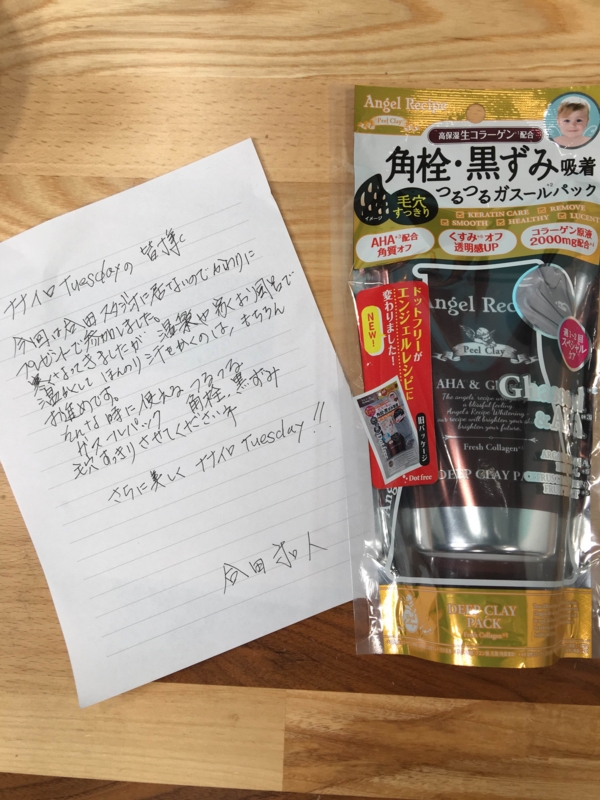 ナナイロ Tuesdayの 皆様へ
今回は合田スタジオに居ないのでかわりに
プレゼントで参加しました。
暑くなってきましたが温泉や家のお風呂で
温かくして ほんのり汗をかくのは、もちろん
お進めです。
そんな時に使えるつるつる
ガスールパック 角栓、黒ずみ
毛穴すっきりさせてください
さらに美しく ナナイロ Tuesday!!
合田 和人
Angel Recipe
Peel Clay
高保湿生コラーゲン配合
角栓・黒ずみ吸着
つるつるガスールパック
毛穴すっきり
イメージ
KERATIN CARE REMOVE
SMOOTH HEALTHY LUCENT
AHA配合
角質オフ
くすみオフ
透明感UP
コラーゲン原液
2000mg配合
ドットフリーが
エンジェルレシピに
変わりました!
NEW!
旧パッケージ
Dot free
Angel Recipe
Peel Clay
AHA & G
Fresh Collagen
DEEP CLAY PA
週1-2回
スペシャル
ケア
DEEP CLAY
PACK
Fresh Collagen